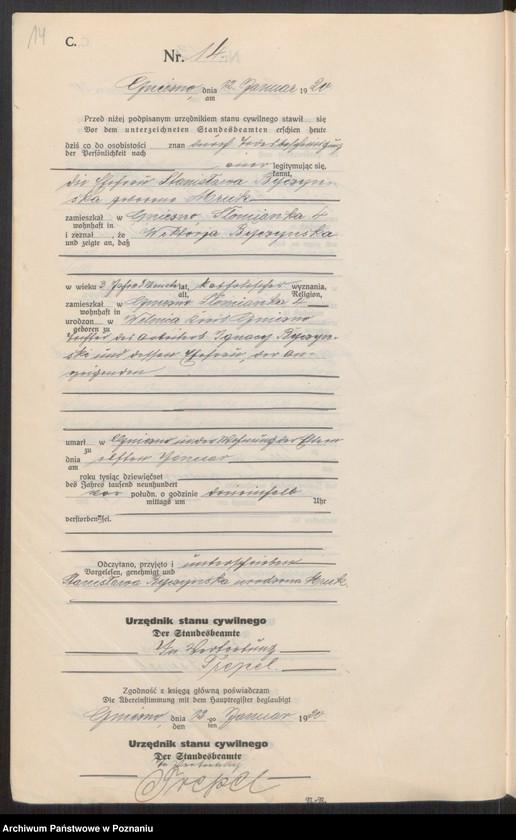 14
C.
Nr. 14.
Gniezno, dnia 12. Januar 1920
am
Przed niżej podpisanym urzędnikiem stanu cywilnego stawił się
Vor dem unterzeichneten Standesbeamten erschien heute
dziś co do osobistości znan durch
der Persönlichkeit nach
einer legitymując się,
kannt,
die Ehefrau Stanisława
geborene Mruk
zamieszkał w Gniezno Słomianka 4
wohnhaft in
i zeznał, że Wiktorja
und zeigte an, daß
w wieku 2 Jahre lat, katholischer wyznania,
alt, Religion,
zamieszkał w Gniezno Słomianka 4
wohnhaft in
urodzon w Kreis Gniezno
geboren zu
Tochter des Arbeiters Ignacy
ski und dessen Ehefrau, der An-
zeigenden
umarł w Gniezno in der Wohnung der Eltern
zu
dnia elften Januar
am
roku tysiąc dziewięćset
des Jahres tausend neunhundert
vor połudn. o godzinie
mittags um Uhr
verstorben sei.
Odczytano, przyjęto i unterschrieben
Vorgelesen, genehmigt und
Stanisława urodzona Mruk
Urzędnik stanu cywilnego
Der Standesbeamte
In Vertretung
Trepel.
Zgodność z księgą główną poświadczam
Die Übereinstimmung mit dem Hauptregister beglaubigt
Gniezno, dnia 12 -go Januar 1920
den ten
Urzędnik stanu cywilnego
Der Standesbeamte
In Vertretung
Trepel
Archiwum Państwowe w Poznaniu